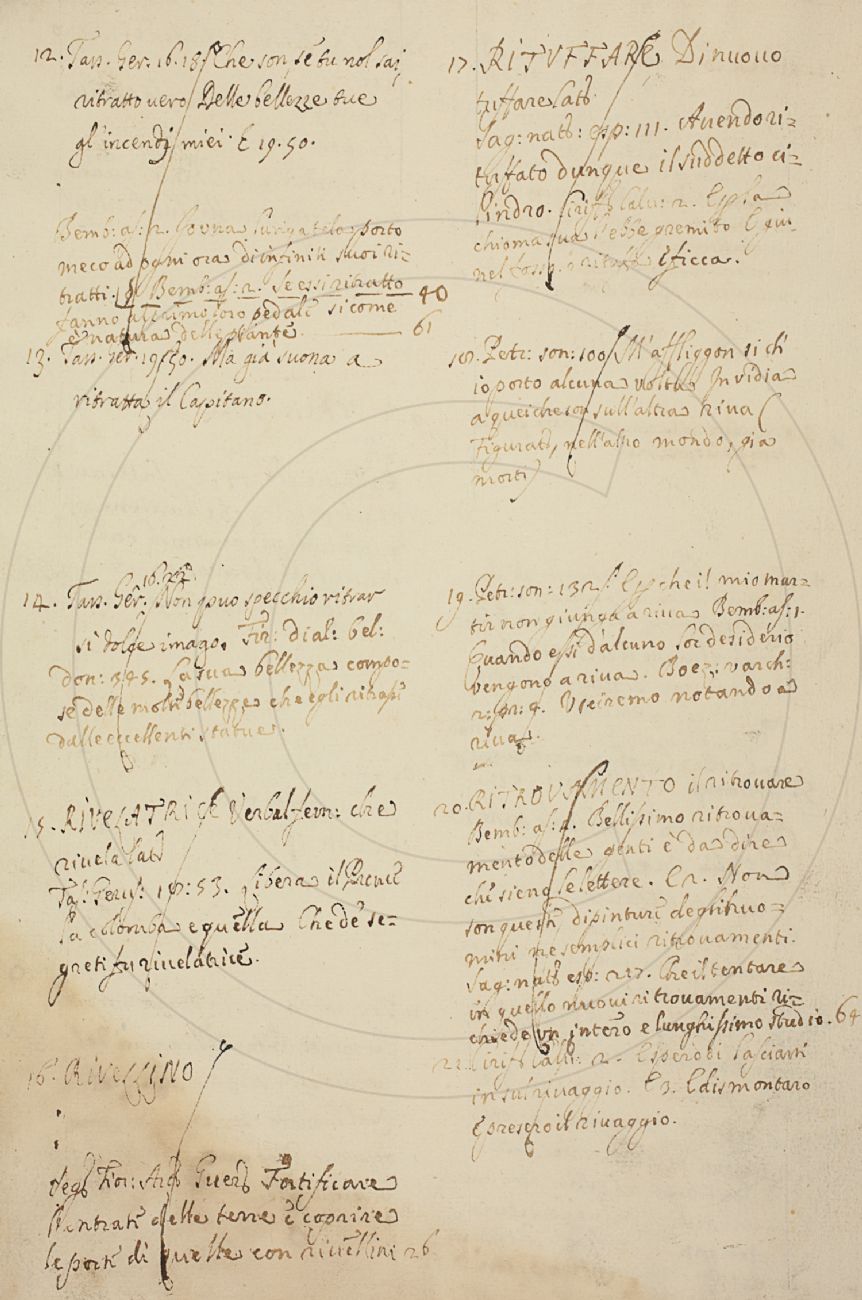 12. Tass. Ger. 16. 18. Che son, se tu nol sai,
ritratto vero Delle bellezze tue
gl'incendi miei. E 19. 50.
Bemb: as: 2. porto
meco ad ogni ora di infiniti suoi ri-
tratti. Bemb: as: 2. Se essi ritratto 40
fanno al primo loro pedale si come
è natura delle piante. 61
13. Tass. Ger. 19. 50. Ma già suona a
ritratta il Capitano.
14. Tass. Ger. 16. 22. Non può specchio ritrar
sì dolce imago. Fir: dial: bel:
don: 345. La sua bellezza compo-
se delle molte bellezze che egli ritrasse
dalle eccellenti statue.
15. RIVELATRICE Verbal fem: che
rivela Lat
Tas. Gerus: 18: 53. Libera il Prence
la colomba e quella Che de se-
greti fu rivelatrice.
16. RIVELLINO
Fior: Guer Fortificare
l'entrate delle terre e coprire
le porte di quelle con rivellini 26
17. RITUFFARE Di nuovo
tuffare Lat
Sag: nat: esp: 111. Avendo ri-
tuffato dunque il suddetto ci-
lindro. Ciriff. Calv: 2. E per la
chioma sua l'ebbe gremito E giù
nel e ficca.
18. Petr: son: 100. M'affliggon sì ch'
io porto alcuna volta Invidia
a quei che son sull'altra riva (
Figurat, nell'altro mondo, già
morti)
19. Petr: son: 132. E perche il mio mar-
tir non giunga a riva Bemb: as: 1.
Quando essi d'alcuno lor desiderio
vengono a riva. Boez: varch:
2: pr: 4. Usciremo notando a
riva.
20. RITROVAMENTO il ritrovare
Bemb: as: 2. Bellissimo ritrova-
mento delle genti è da dire
che sieno le lettere. E 2. Non
son queste dipinture degli huo-
mini ne semplici ritrovamenti.
Sag: nat: esp: 227. Che il tentare
in quello nuovi ritrovamenti ri-
chiede un intero e lunghissimo studio. 64
22. Ciriff. Calv: 2. E spero di lasciarti
in sul rivaggio. E 3. E dismontaro
E presero il rivaggio.